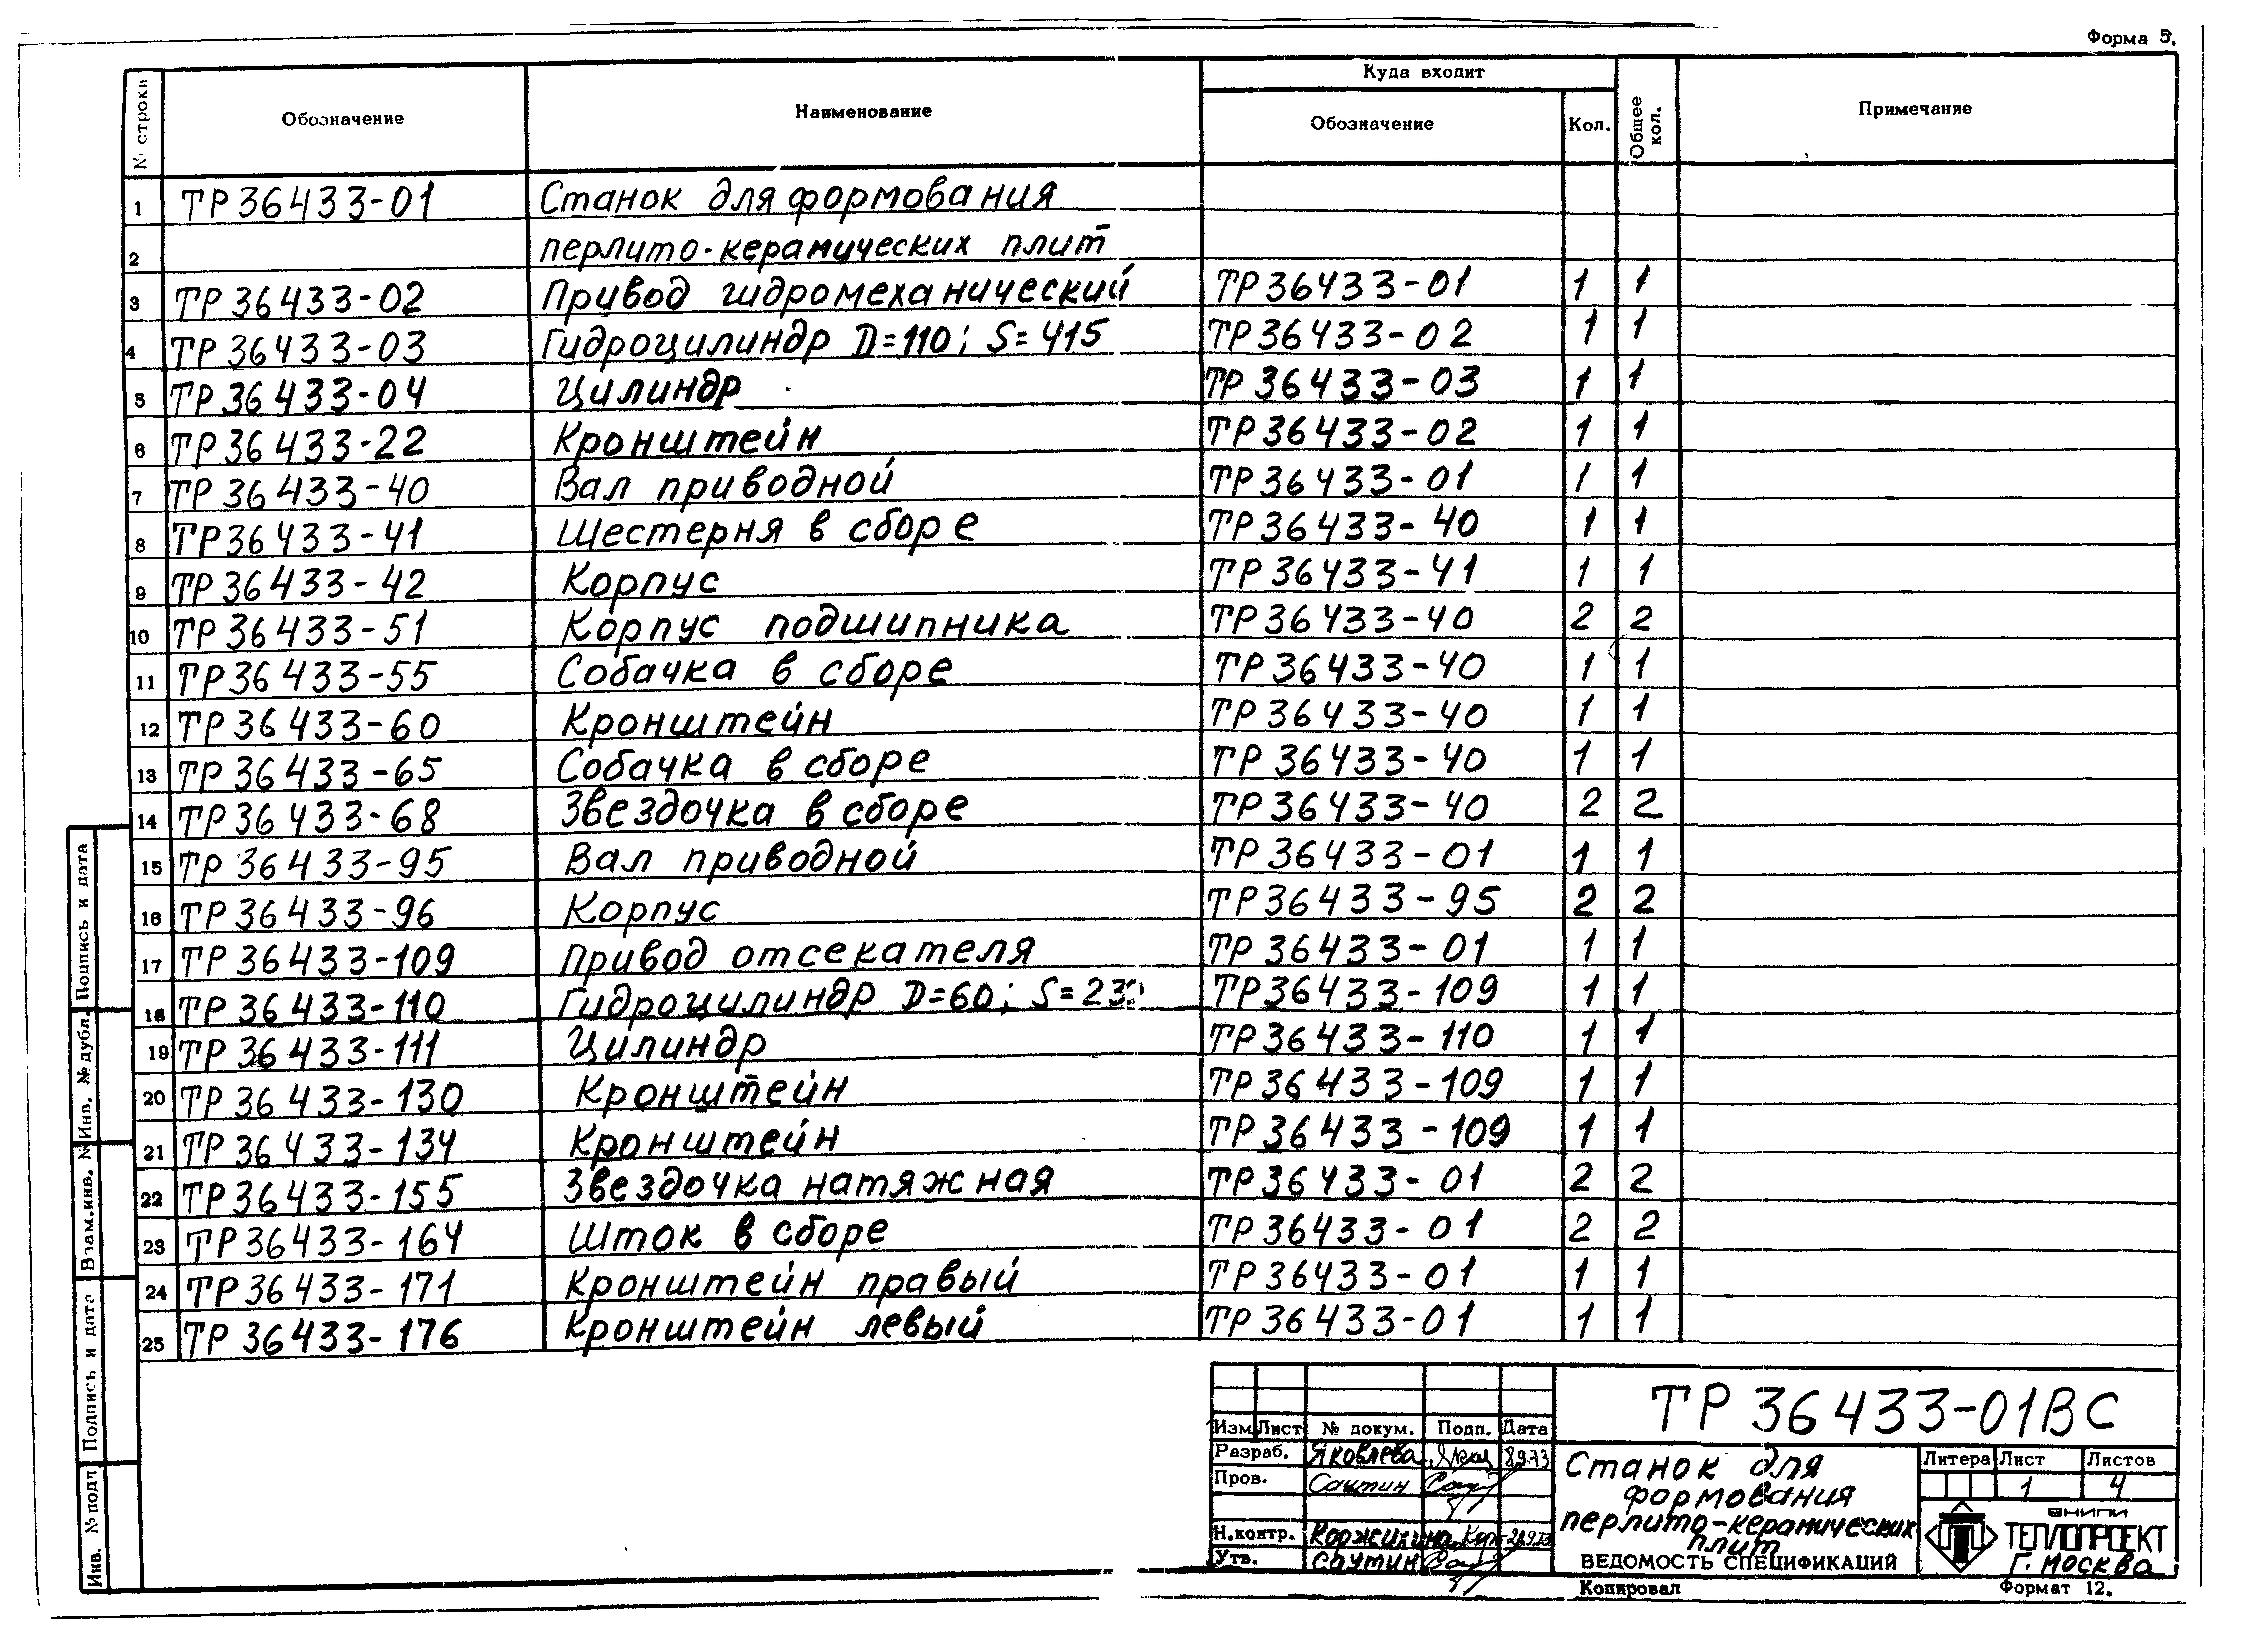 Форма 5.
№ строки Обозначение Наименование Куда входит Обозначение Кол. Общее кол. Примечание
1 ТР 36433-01 Станок для формования
2 перлито-керамических плит
3 ТР 36433-02 Привод гидромеханический ТР 36433-01 1 1
4 ТР 36433-03 Гидроцилиндр D=110; S=415 ТР 36433-02 1 1
5 ТР 36433-04 Цилиндр ТР 36433-03 1 1
6 ТР 36433-22 Кронштейн ТР 36433-02 1 1
7 ТР 36433-40 Вал приводной ТР 36433-01 1 1
8 ТР 36433-41 Шестерня в сборе ТР 36433-40 1 1
9 ТР 36433-42 Корпус ТР 36433-41 1 1
10 ТР 36433-51 Корпус подшипника ТР 36433-40 2 2
11 ТР 36433-55 Собачка в сборе ТР 36433-40 1 1
12 ТР 36433-60 Кронштейн ТР 36433-40 1 1
13 ТР 36433-65 Собачка в сборе ТР 36433-40 1 1
14 ТР 36433-68 Звездочка в сборе ТР 36433-40 2 2
15 ТР 36433-95 Вал приводной ТР 36433-01 1 1
16 ТР 36433-96 Корпус ТР 36433-95 2 2
17 ТР 36433-109 Привод отсекателя ТР 36433-01 1 1
18 ТР 36433-110 Гидроцилиндр D=60; ТР 36433-109 1 1
19 ТР 36433-111 Цилиндр ТР 36433-110 1 1
20 ТР 36433-130 Кронштейн ТР 36433-109 1 1
21 ТР 36433-134 Кронштейн ТР 36433-109 1 1
22 ТР 36433-155 Звездочка натяжная ТР 36433-01 2 2
23 ТР 36433-164 Шток в сборе ТР 36433-01 2 2
24 ТР 36433-171 Кронштейн правый ТР 36433-01 1 1
25 ТР 36433-176 Кронштейн левый ТР 36433-01 1 1
Подпись и дата
Инв. № дубл.
Взам.инв. №
Подпись и дата
Инв. № подл
ТР 36433-01ВС
Изм Лист № докум. Подп. Дата
Разраб. Яковлева 8.9.73
Пров. Саутин
Н.контр. Коржихина
Утв. Саутин
Станок для
формования
перлито-керамических
плит
ВЕДОМОСТЬ СПЕЦИФИКАЦИЙ
Литера Лист Листов
1 4
ВНИПИ
ТЕПЛОПРОЕКТ
г. Москва
Копировал Формат 12.